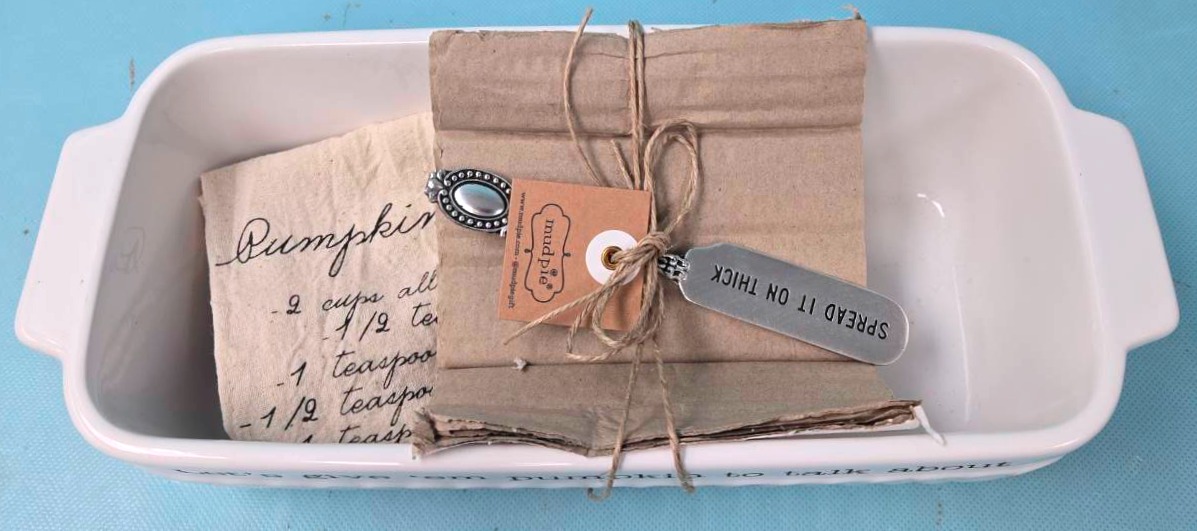 Pumpkin
- 2 cups all
- 1/2 tea
- 1 teaspoo
- 1/2 teaspo
1 teasp
www.mudpie.com - @mudpiegift
mudpie®
SPREAD IT ON THICK
Let's give 'em pumpkin to talk about